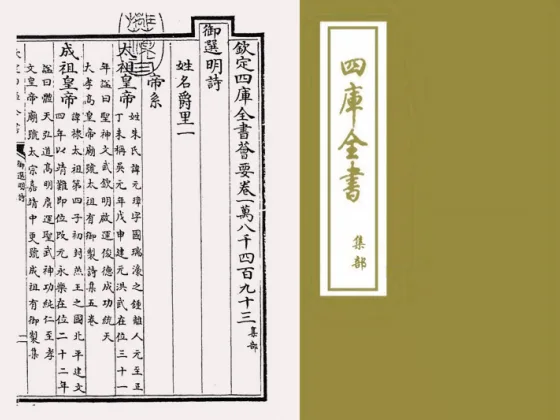 欽定四庫全書薈要卷一萬八千四百九十三 集部
御選明詩
姓名爵里一
帝系
太祖皇帝
姓朱氏諱元璋字國瑞濠之鍾離人元至正
丁未稱吳元年戊申建元洪武在位三十一
年諡曰聖神文武欽明啟運俊德成功統天
大孝高皇帝廟號太祖有御製詩集五卷
成祖皇帝
諱棣太祖第四子初封燕王之國北平建文
四年以靖難即位改元永樂在位二十二年
諡曰體天弘道高明廣運聖武神功純仁至孝
文皇帝廟號太宗嘉靖中更號成祖有御製集
御選明詩
四庫全書
集部